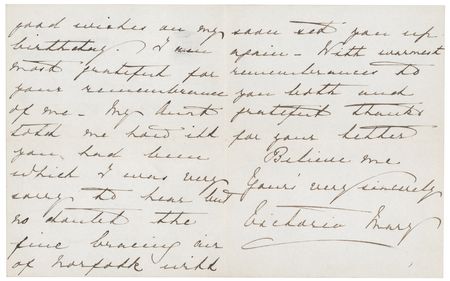 good wishes on my
birthday. I am
most grateful for
your remembrance
of me. My Aunt
told me how ill
you had been
which I was very
sorry to hear but
no doubt the
fine bracing air
of Norfolk will
soon set you up
again. With warmest
remembrances to
you both and
grateful thanks
for your letter
Believe me
Yours very sincerely
Victoria Mary